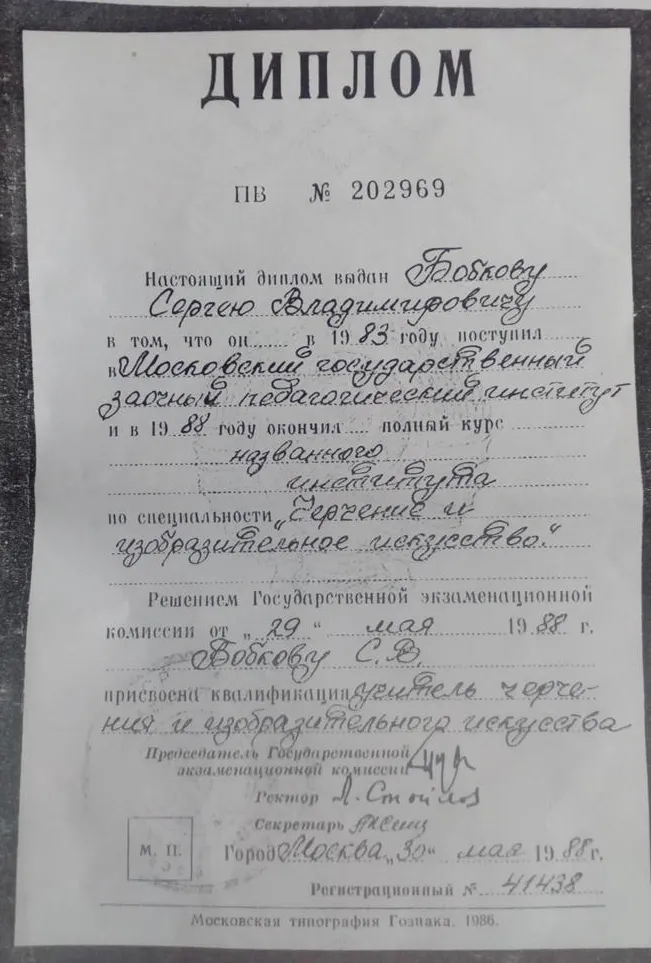 ДИПЛОМ
ПВ № 202969
Настоящий диплом выдан Бобкову
Сергею Владимировичу
в том, что он в 1983 году поступил
в Московский государственный
заочный педагогический институт
и в 1988 году окончил полный курс
названного
института
по специальности „Черчение и
изобразительное искусство."
Решением Государственной экзаменационной
комиссии от „29" мая 1988 г.
Бобкову С. В.
присвоена квалификация учитель черче-
ния и изобразительного искусства
Председатель Государственной
экзаменационной комиссии
Ректор
Секретарь
М. П. Город Москва „30" мая 1988 г.
Регистрационный № 41438
Московская типография Гознака. 1986.